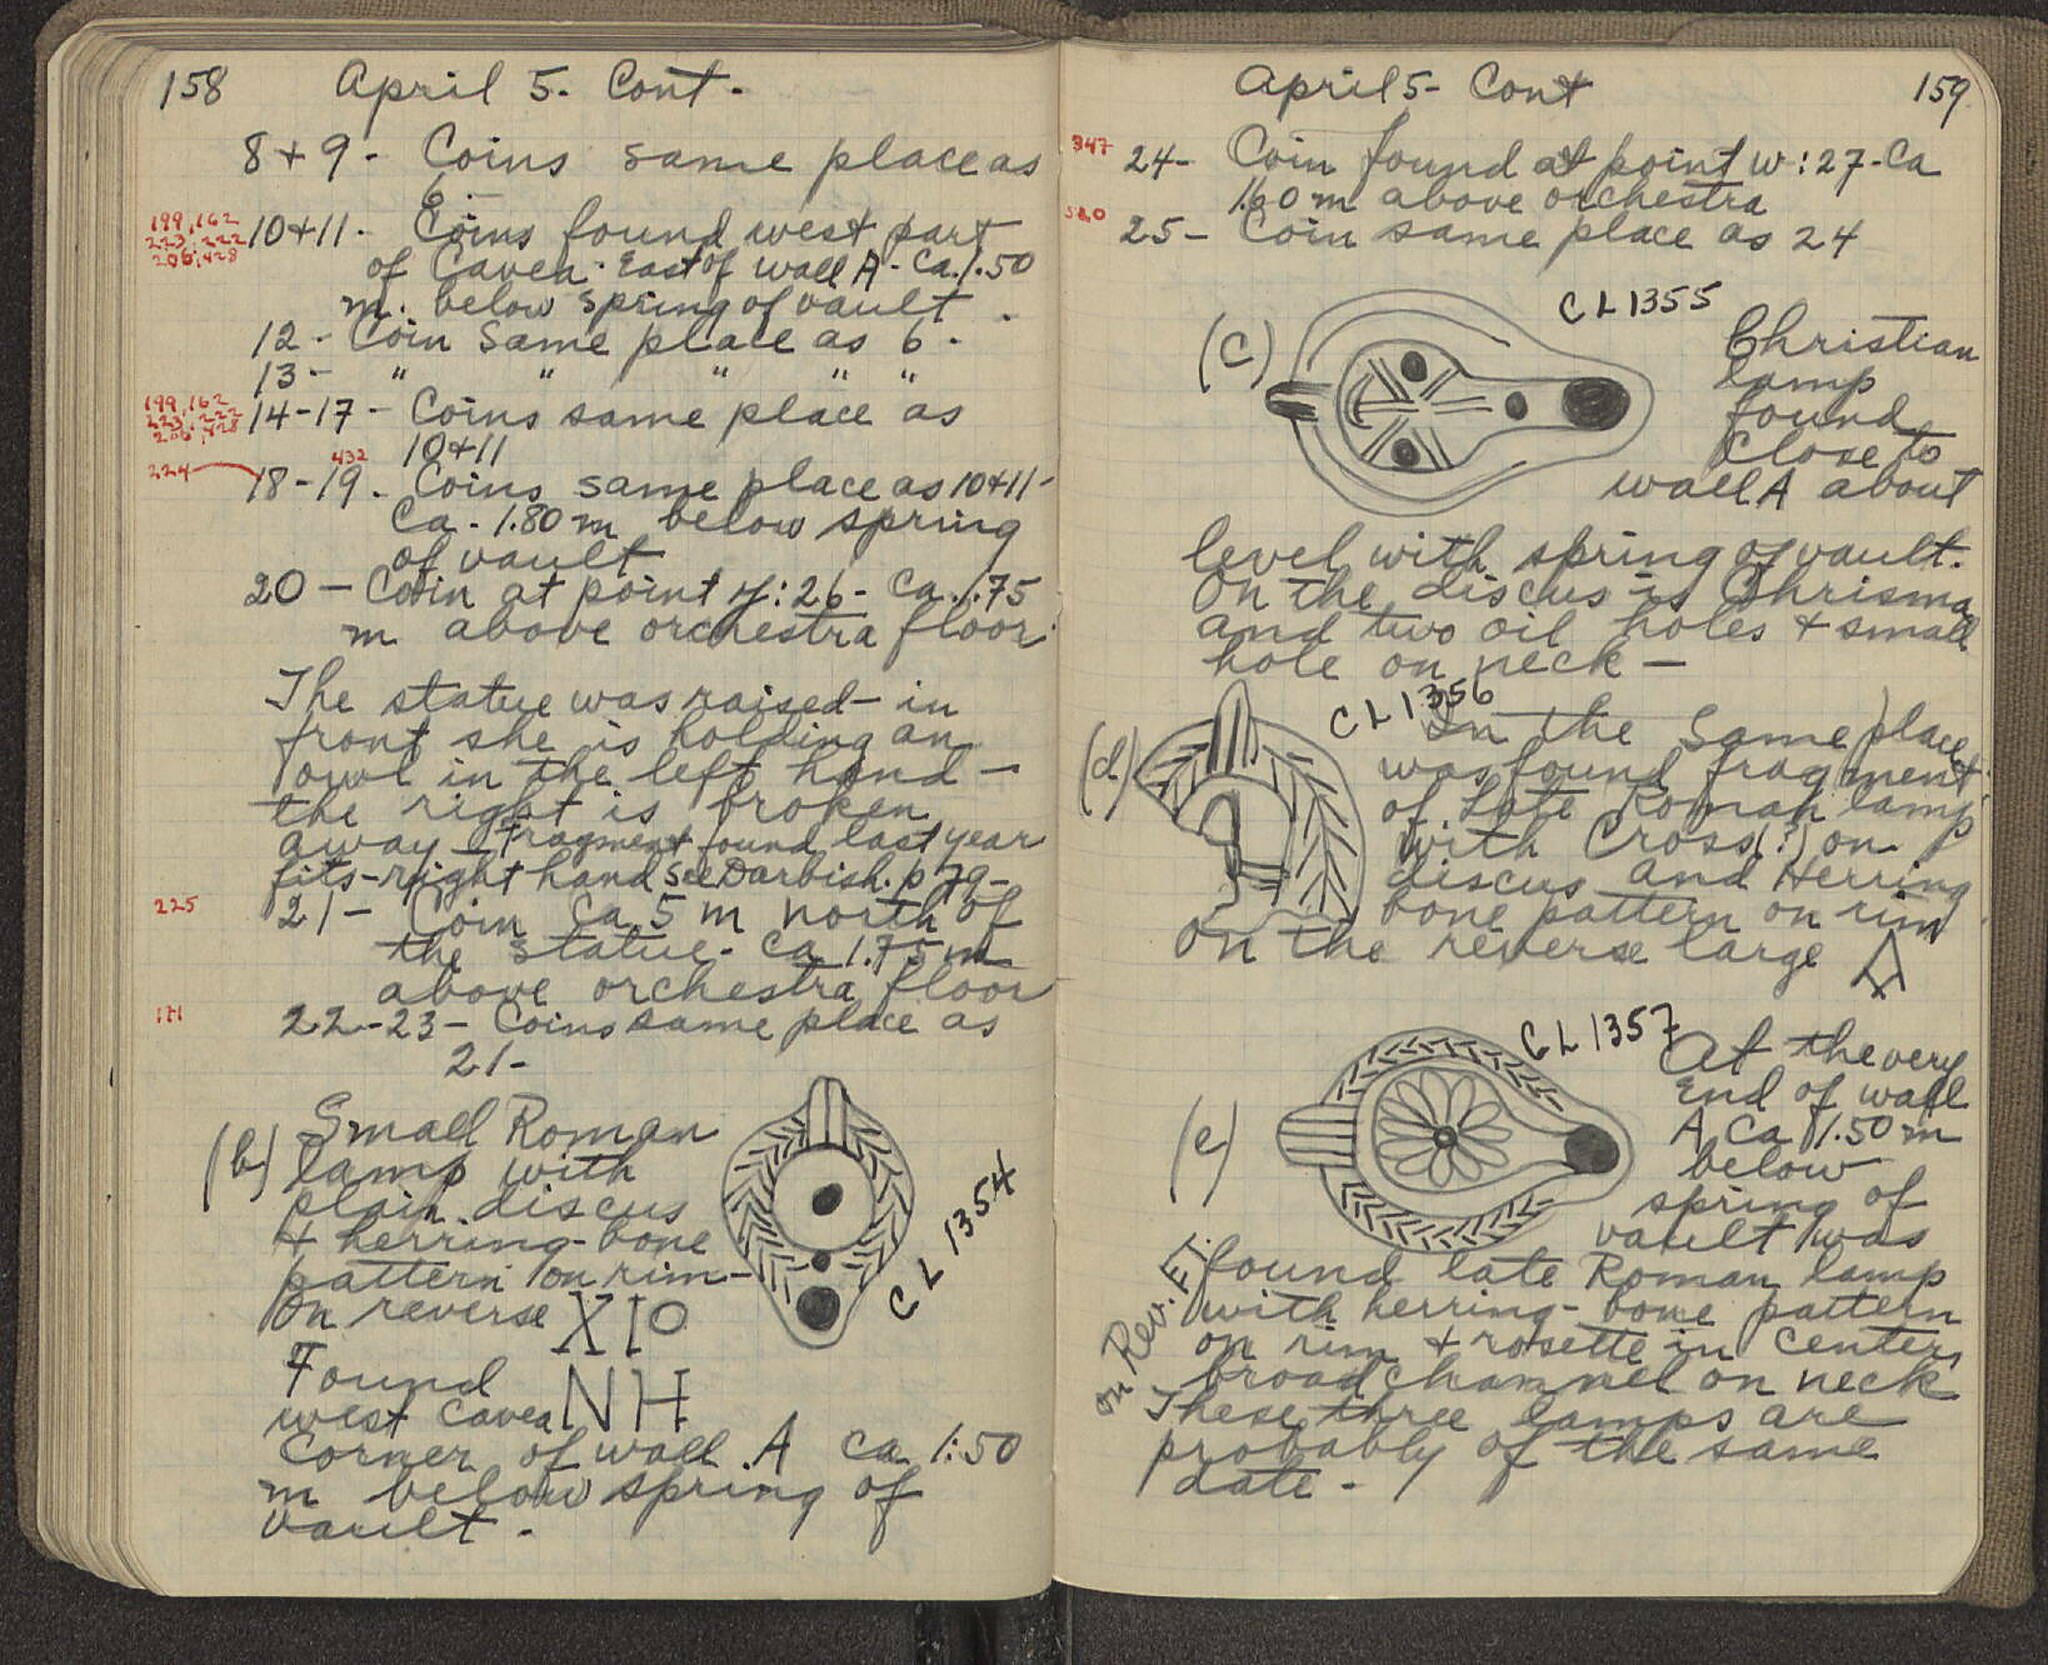 158 April 5. Cont.
8 + 9 - Coins same place as
6 -
199, 162
223, 222
206, 428
10+11 - Coins found west part
of Cavea. East of wall A - Ca. 1.50
m. below spring of vault.
12 - Coin same place as 6 -
13 - " " " " "
199, 162
223, 222
206, 428
14-17 - Coins same place as
10+11
224 432
18-19. Coins same place as 10+11 -
Ca. 1.80 m below spring
of vault
20 - Coin at point y:26 - Ca. 1.75
m above orchestra floor
The statue was raised - in
front she is holding an
owl in the left hand -
the right is broken
away - Fragment found last year
fits - right hand See Darbish. p 79 -
225
21 - Coin Ca 5 m north of
the statue - Ca 1.75 m
above orchestra floor
22-23 - Coins same place as
21 -
(b) Small Roman
lamp with
plain discus
+ herring-bone
pattern on rim -
On reverse XIO
NH
Found
west cavea
Corner of wall A Ca 1:50
m below spring of
vault.
CL 1354
April 5 - Cont 159
347
24 - Coin found at point w:27 - Ca
1.60 m above orchestra
25 - Coin same place as 24
CL 1355
(c) Christian
lamp
found
close to
wall A about
level with spring of vault.
On the discus is Chrisma
and two oil holes + small
hole on neck -
CL 1356
(d) In the same place
was found fragment
of Late Roman lamp
with Cross(?) on
discus and Herring
bone pattern on rim
On the reverse large A
CL 1357
(e) At the very
End of wall
A Ca 1.50 m
below
spring of
vault was
found late Roman lamp
with herring-bone pattern
on rim + rosette in center,
broad channel on neck
These three lamps are
probably of the same
date -
on Rev.